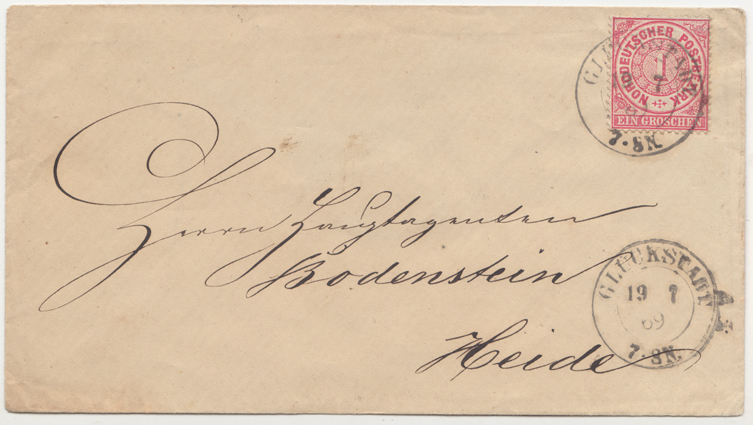 NORDDEUTSCHER POSTBEZIRK
1
EIN GROSCHEN
7
7-8N.
Herrn Hauptagenten
Bodenstein
Heide
GLÜCKSTADT
19 7
69
7-8N.